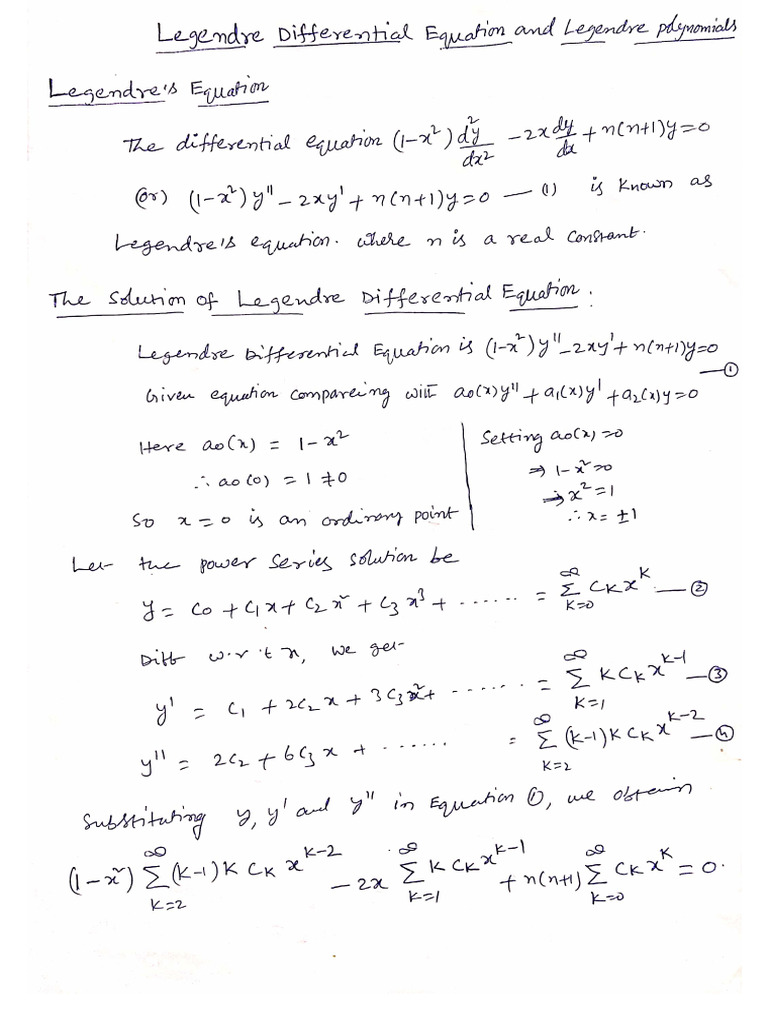 Legendre Differential Equation and Legendre polynomials
Legendre's Equation
The differential equation (1-x²) d²y/dx² - 2x dy/dx + n(n+1)y=0
(or) (1-x²) y" - 2xy' + n(n+1)y=0 — (1) is known as
Legendre's equation. where n is a real constant.
The Solution of Legendre Differential Equation:
Legendre Differential Equation is (1-x²)y" - 2xy' + n(n+1)y=0 — ①
Given equation compareing with a₀(x)y" + a₁(x)y' + a₂(x)y=0
Here a₀(x) = 1-x²
∴ a₀(0) = 1 ≠ 0
So x=0 is an ordinary point
Setting a₀(x)=0
⇒ 1-x²=0
⇒ x²=1
∴ x= ±1
Let the power series solution be
y = c₀ + c₁x + c₂x² + c₃x³ + ...... = ∑_{k=0}^{∞} c_k x^k — ②
Diff w.r.t x, we get
y' = c₁ + 2c₂x + 3c₃x² + ...... = ∑_{k=1}^{∞} k c_k x^{k-1} — ③
y" = 2c₂ + 6c₃x + ...... = ∑_{k=2}^{∞} (k-1)k c_k x^{k-2} — ④
Substituting y, y' and y" in Equation ①, we obtain
(1-x²) ∑_{k=2}^{∞} (k-1)k c_k x^{k-2} - 2x ∑_{k=1}^{∞} k c_k x^{k-1} + n(n+1) ∑_{k=0}^{∞} c_k x^k = 0.